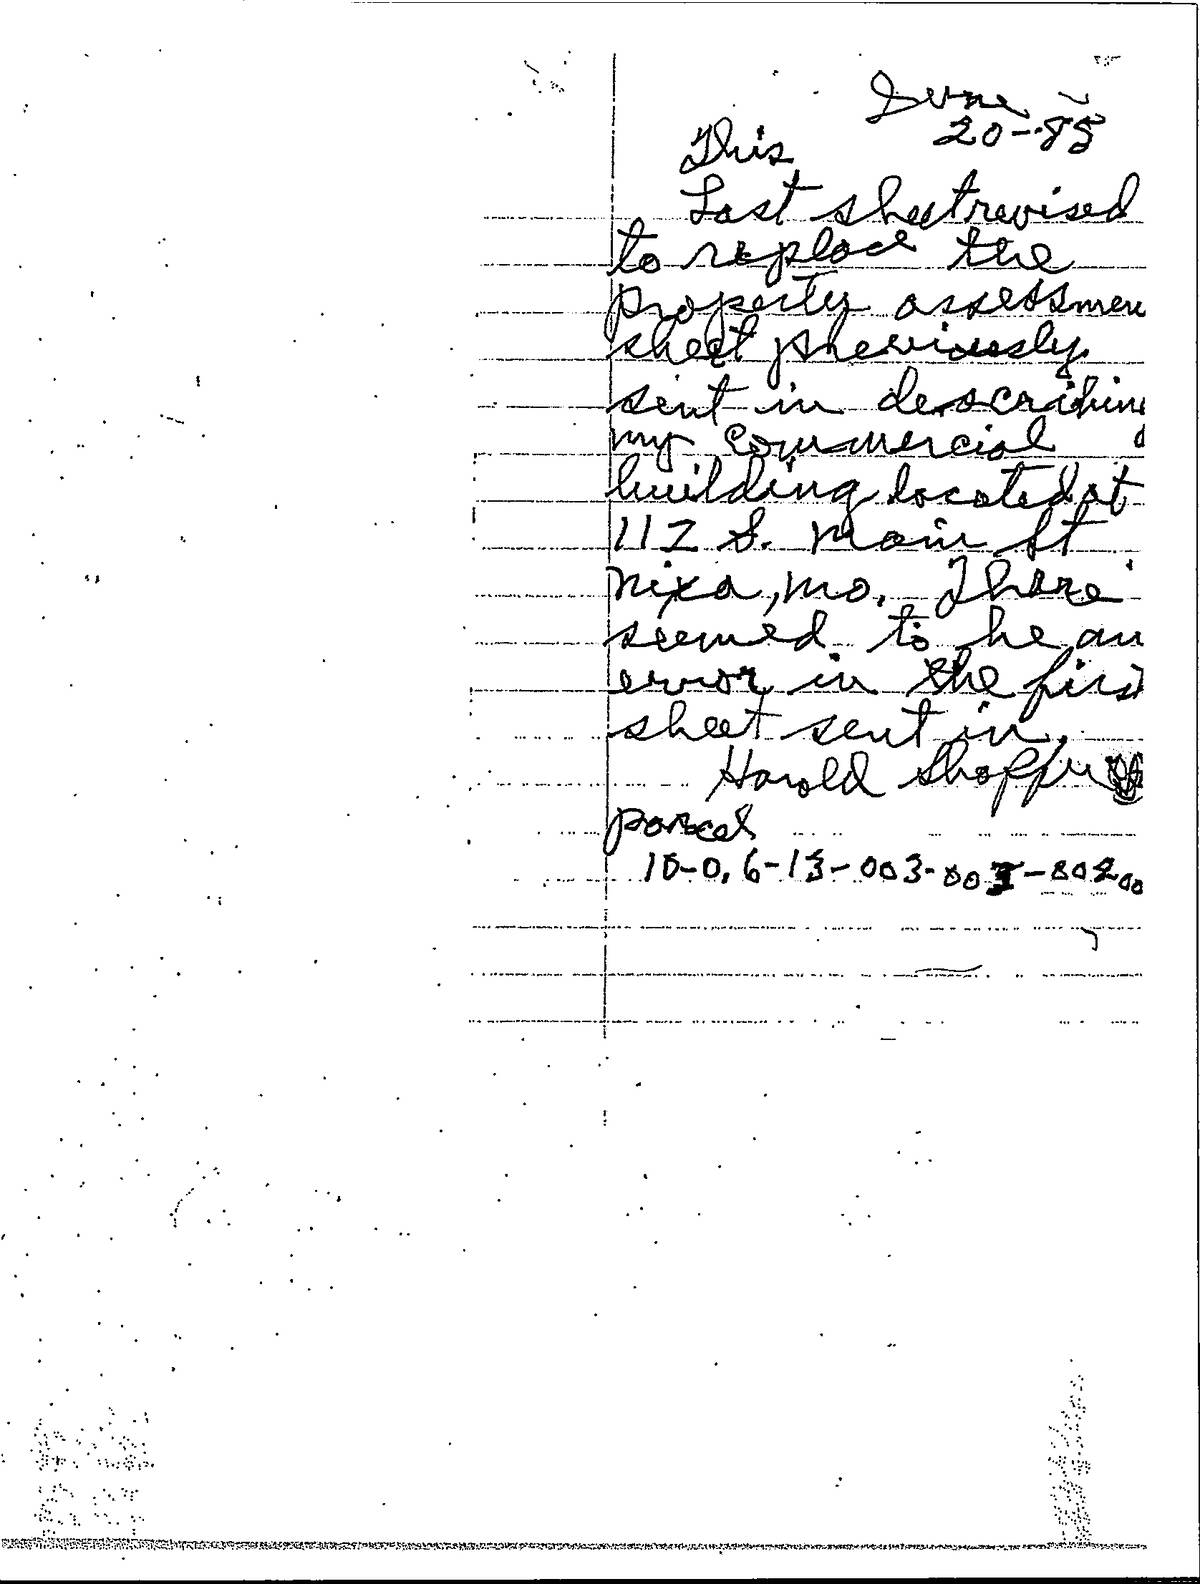 June
20-85
This
Last sheet revised
to replace the
property assessmen
sheet previously
sent in describing
my commercial
building located at
112 S. Main St
Nixa, Mo. There
seemed to be an
error in the first
sheet sent in.
Harold
parcel
10-0.6-13-003-003-802.00